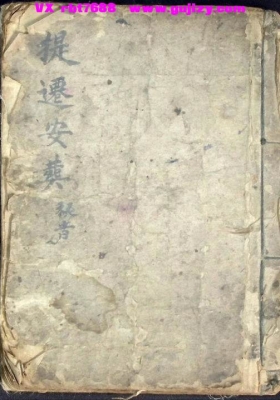 VX rst7688 www.gujizy.com
提遷安葬
秘書